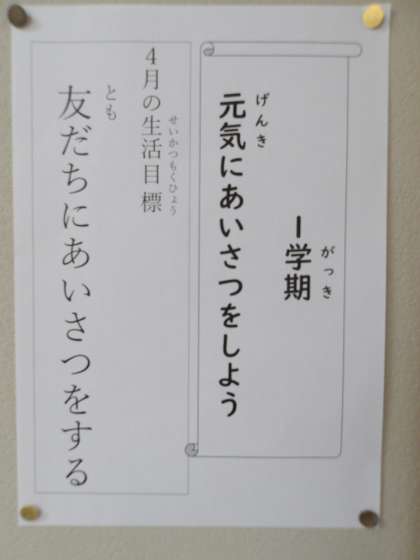 1学期
がっき
元気にあいさつをしよう
げんき
4月の生活目標
せいかつもくひょう
友だちにあいさつをする
とも